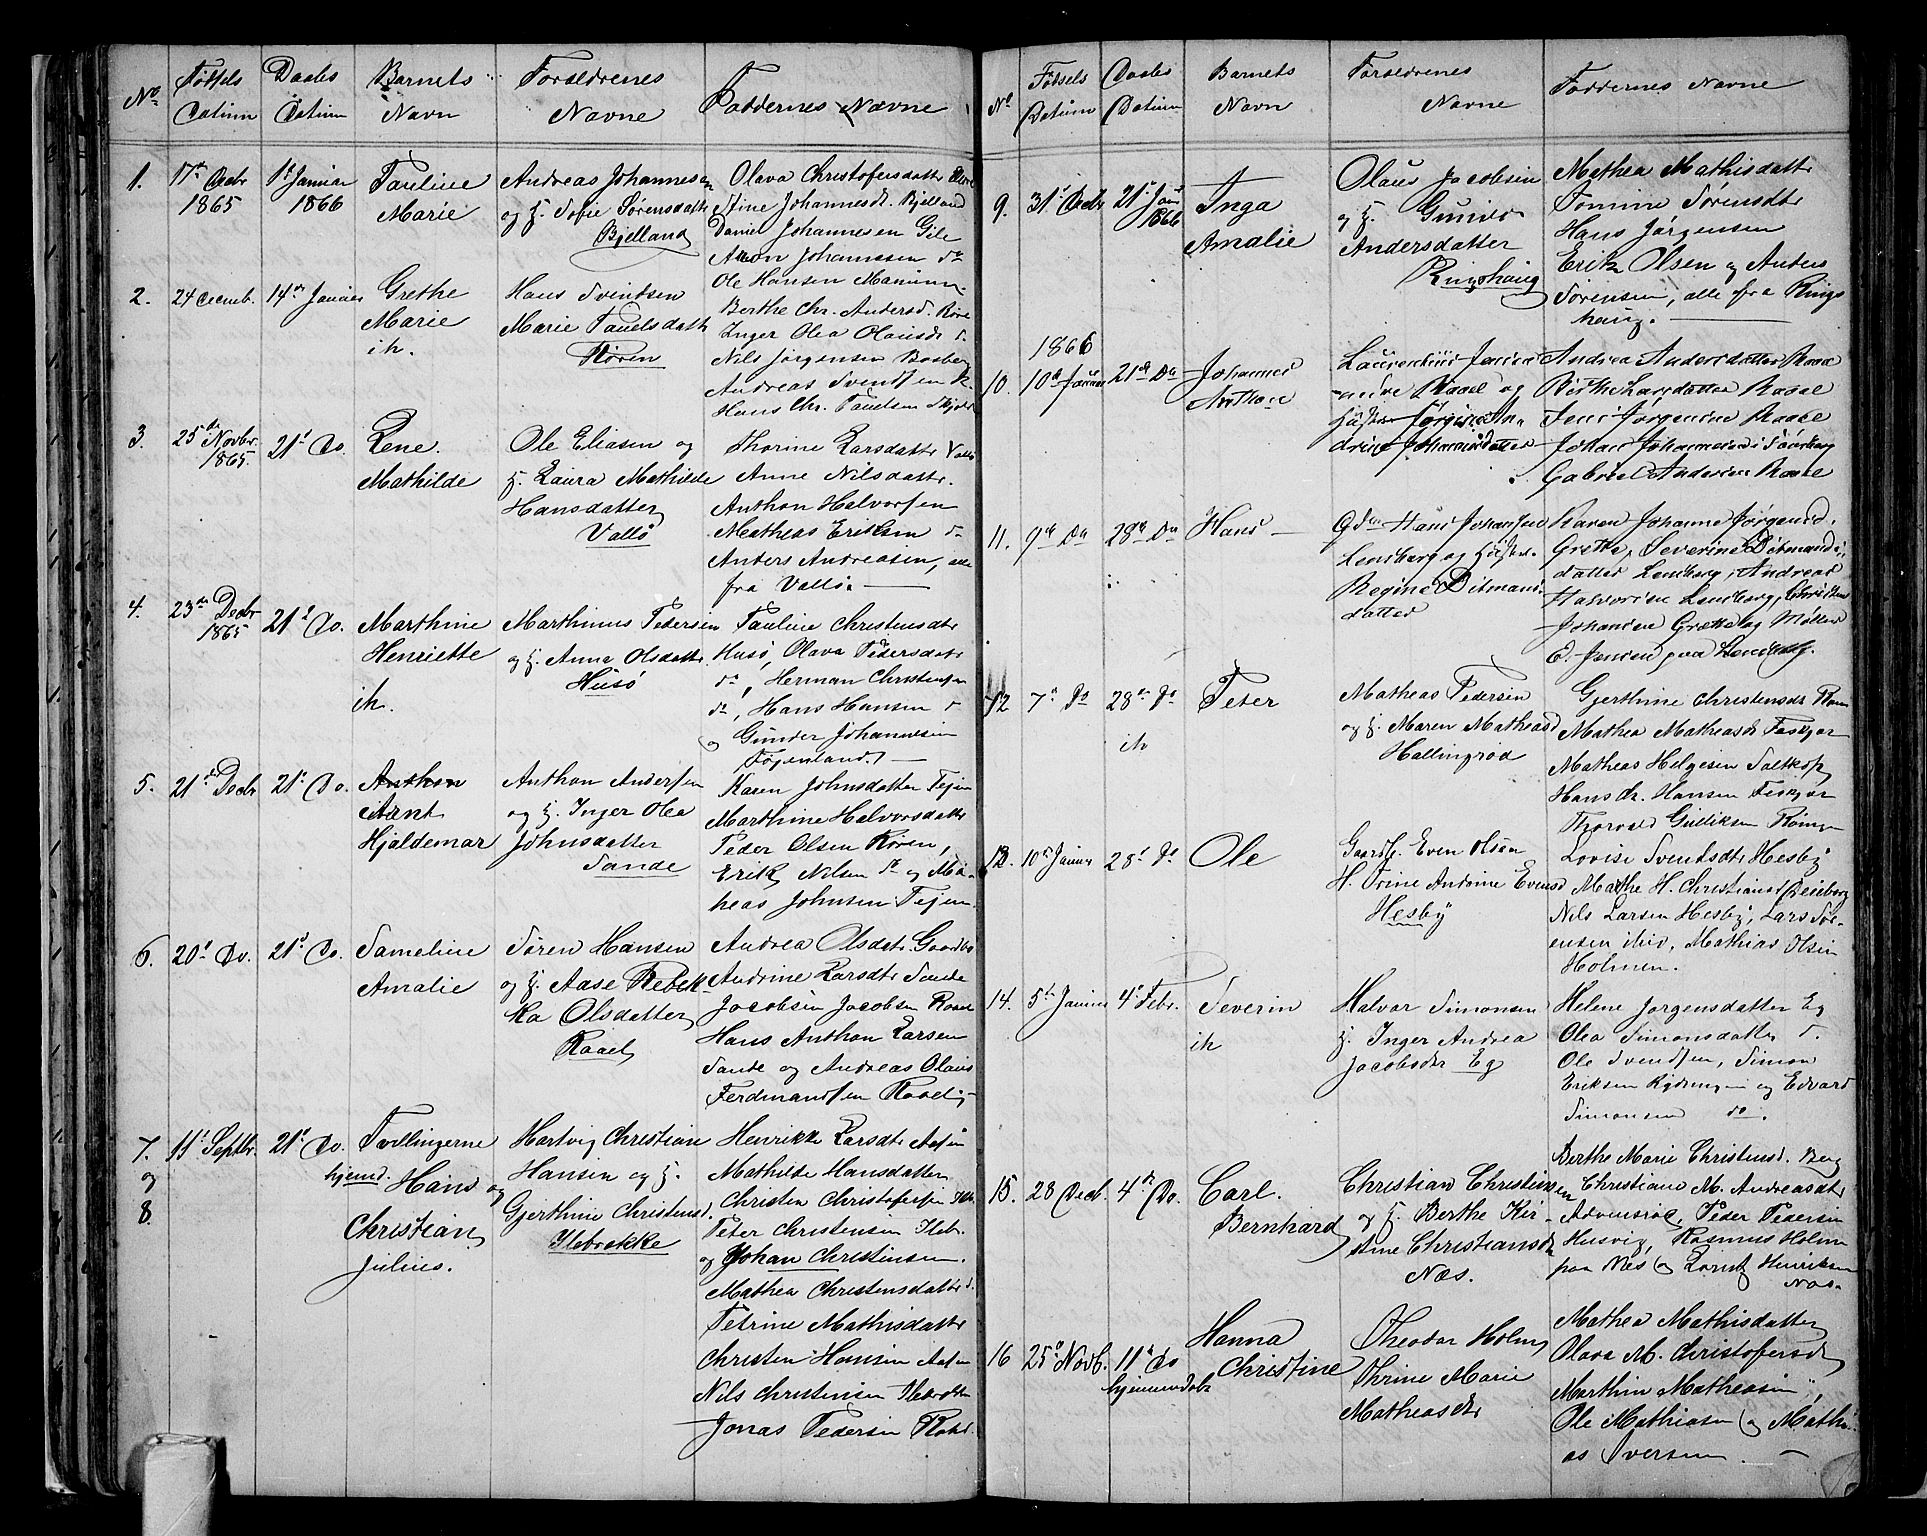 No Fødsels Datum Daabs Datum Barnets Navn Forældrenes Navne Faddernes Navne
1. 17de Decbr 1865 1ste Januar 1866 Pauline Marie
Andreas Johannesen
og H. Sofie Sørensdattr
Bjelland
Olava Christofersdattr
Stine Johannesd. Bjelland
Daniel Johannesen Gile
Aron Johannesen do
Ole Hansen
2. 24 Decemb. 14de Januar Grethe Marie ik.
Hans Svendsen
Marie Paulsdattr
Røren
Berthe Chr. Andersd. Røre
Inger Olea Olausdr do
Nils Jørgensen Basberg
Andreas Svendsen R.
Hans Chr. Paulsen
3. 25de Novbr. 1865. 21d Do. Lene Mathilde
Ole Eliasen og
H. Laura Mathilde
Hansdatter
Vallø
Thorine Larsdattr Vallø
Anne Nilsdattr.
Anthon Halvorsen
Mathias Eriksen do
Anders Andreasen, alle
fra Vallø.
4. 23de Decbr 1865 21d Do. Marthine Henriette ik.
Marthinus Pedersen
og H. Anna Olsdattr
Husø
Pauline Christensdtr
Husø, Olava Pedersdatr
do, Herman Christensen
do, Hans Hansen do
og Gunder Johannesen
5. 21de Decbr 21d Do. Anthon Arent Hjaldemar
Anthon Andersen
og H. Inger Olea
Johnsdatter
Sande
Karen Johnsdatter Fejen
Marthine Halvorsdattr
Peder Olsen Røren,
Erik Nilsen do og Ma-
heas Johnsen Fejen
6. 20d Do. 21d Do. Sameline Amalie
Søren Hansen
og H. Aase Rebek-
ka Olsdatter
Raael
Andrea Olsdatr
Andrine Larsdtr Sande
Jacobsen Jacobsen Raael
Hans Anthon Larsen
Sande og Andreas Olaus
Ferdinandsen Raael
7. og 8. 11d Septbr. 21d Do. Tvillingerne
hjemd. Hans og
Christian
Julius.
Hartvig Christian
Hansen og H.
Gjerthine Christensd.
Ilebrække
Henrikke Larsdtr
Mathilde Hansdatter
Christen Christofersen
Peter Christensen Ilebr.
og Johan Christensen.
Mathea Christensdatter
Petrine Mathisdattr
Christen Hansen
Nils Christensen
Jonas Pedersen
No Fødsels Datum Daabs Datum Barnets Navn Forældrenes Navne Faddernes Navne
9. 31d Decbr 21d Jan 1866 Inga Amalie
Olaus Jacobsen
og H. Gunild
Andersdatter
Ringshaug
Mathea Mathisdattr
Tomine Sørensdtr
Hans Jørgensen
Erik Olsen og Anders
Sørensen, alle fra Rings
haug.
1866
10. 10d Januar 21de Do Johannes Anthon
Laurentius Jensen
Raael og
Hustru Jørgine An-
drine Johannesdatter
Andrea Andersdatter Raael
Birthe Larsdatter Raael
Jens Jørgensen Raael
Johan Johannesen
Gabriel Andersen Raael
11. 9de Do 28de Do Hans
Hans Johansen
Lensberg og Hustru
Regine Ditmans
datter
Karen Johanne Jørgensd.
Grette, Severine Ditmands
datter Lensberg, Andreas
Halvorsen Lensberg, Christen
Johansen Grette og Møller
E. Jensen paa Lensberg.
12 7de Do 28de Do ik Peter
Matheas Pedersen
og H. Maren Matheasd
Hallingrød
Gjerthine Christensdr
Mathea Matheasdr
Matheas Helgesen Saltkop
Hans Chr. Hansen
Thorvald Gulliksen
13. 10de Januar 28d Do Ole
Gaardbr. Even Olsen
H. Trine Andrine Evensd
Hesby
Lovise Svendsdtr Hesby
Marthe H. Christiansd
Nils Larsen Hesby, Lars Sør-
ensen ibid, Mathias Olsen
Holmen.
14. 5te Januar 4de Febr. Severin ik
Halvor Simonsen
H. Inger Andrea
Jacobsdr Eg
Helene Jørgensdatter Eg
Olea Simonsdattr do
Ole Svendsen, Simon
Eriksen og Edvard
Simonsen do.
15. 28 Decb. 4de Do. Carl. Bernhard
Christian Christensen
og H. Berthe Kir-
stine Christiansd
Næs.
Berthe Marie Christensd. Berg
Christiane M. Andreasdtr
Advensrød, Peder Pedersen
Husvig, Rasmus Holm
paa Næs og Lorntz Henriksen
Næs.
16 25d Novb. 11te Do hjemmedøbt Hanna Christine
Theodor Holm
Thrine Marie
Matheasdtr
Mathea Mathisdatter
Olava M. Christofersd
Marthin Matheasen,
Ole Mathiasen og Mathi-
as Iversen.